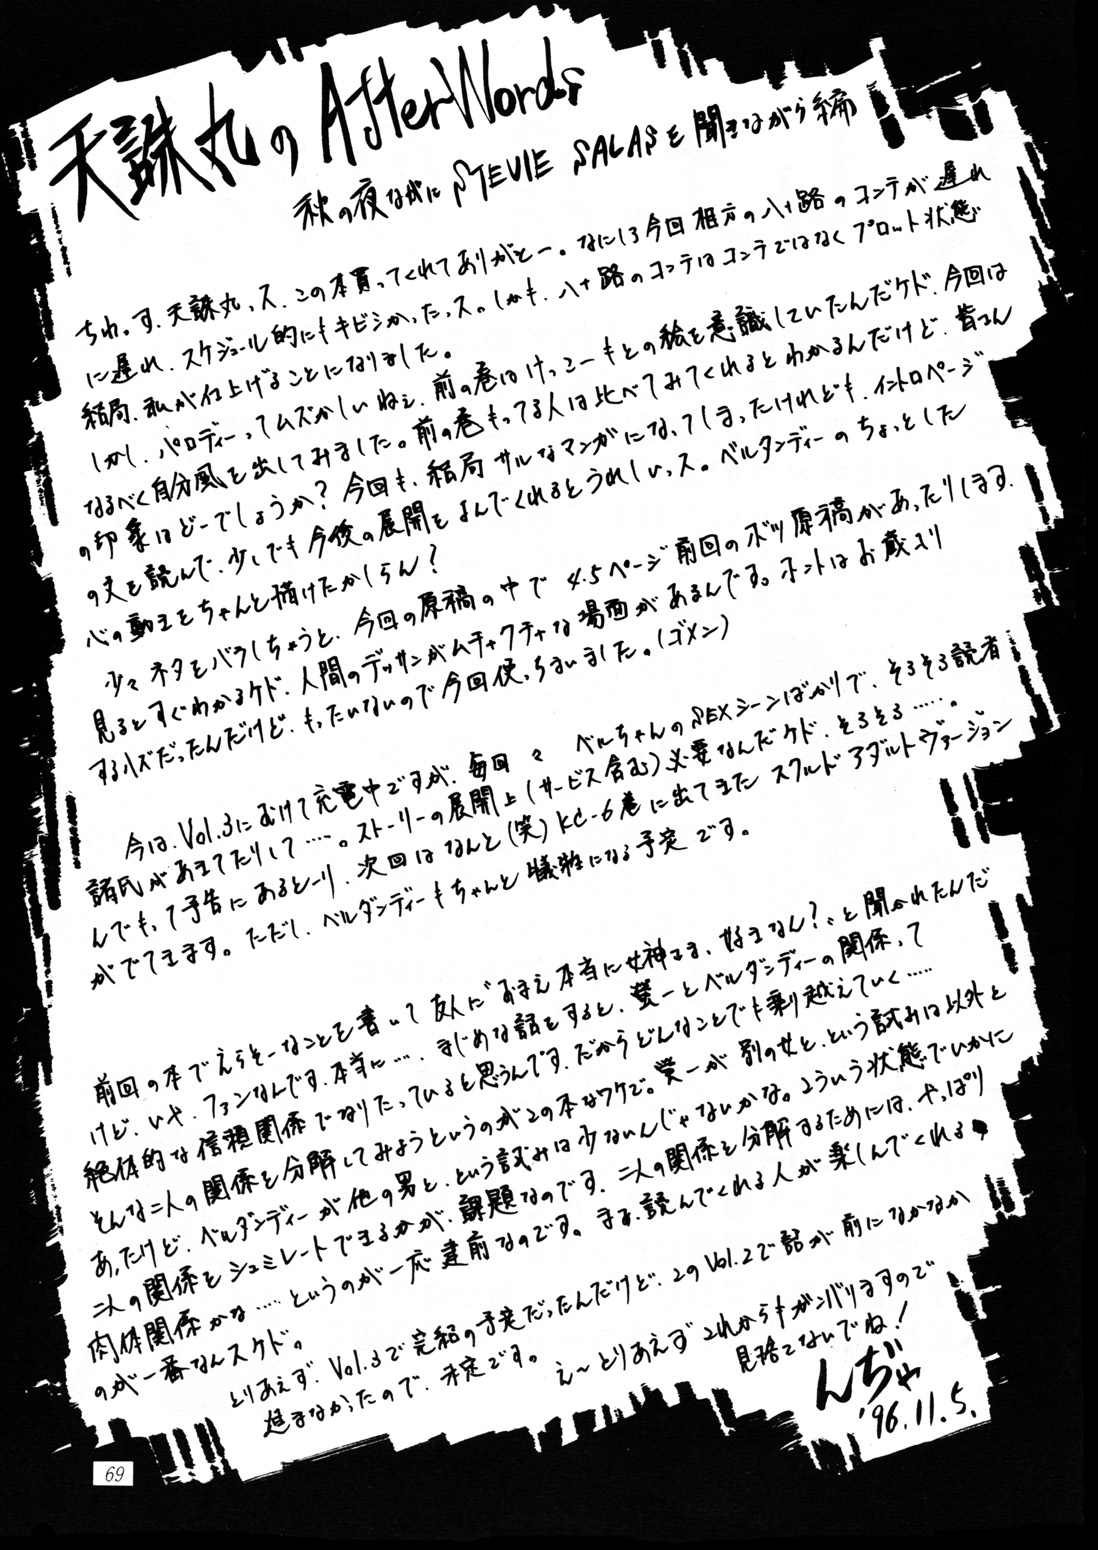 天誅丸の AfterWords
秋の夜ながに STEVIE SALASを聞きながら編
ちわっす、天誅丸っス、この本買ってくれてありがとー。なにしろ今回相方の八十路のコンテが遅れ
に遅れ、スケジュール的にもキビシかったっス。しかも、八十路のコンテはコンテではなくプロット状態
結局、私が仕上げることになりました。
しかし、パロディーってムズかしいねェ、前の巻はけっこーもとの絵を意識していたんだケド、今回は
なるべく自分風を出してみました。前の巻もってる人は比べてみてくれるとわかるんだけど、皆さん
の印象はどーでしょうか?今回も、結局サルなマンガになってしまったけれども、イントロページ
の文を読んで、少しでも今後の展開をよんでくれるとうれしいっス。ベルダンディーのちょっとした
心の動きをちゃんと描けたかしらん?
少々ネタをバラしちゃうと、今回の原稿の中で 4.5ページ前回のボツ原稿があったりします。
見るとすぐわかるケド、人間のデッサンがムチャクチャな場面があるんです。ホントはお蔵入り
するハズだったんだけど、もったいないので今回使っちまいました。(ゴメン)
今は、Vol.3にむけて充電中ですが、毎回々 ベルちゃんのSEXシーンばかりで、そろそろ読者
諸氏があきてたりして……。ストーリーの展開上(サービス含む)必要なんだケド、そろそろ……。
んでもって予告にあるとーり、次回はなんと(笑)KC-6巻に出てきた スクルド アダルトヴァージョン
がでてきます。ただし、ベルダンディーもちゃんと犠牲になる予定です。
前回の本でえらそーなことを書いて友人に"おまえ本当に女神さま、好きなん?"と聞かれたんだ
けど、いや、ファンなんです、本当に…。まじめな話をすると、螢一とベルダンディーの関係って
絶体的な信頼関係でなりたっていると思うんです、だからどんなことでも乗り越えていく……
そんな二人の関係を分解してみようというのがこの本なワケで。螢一が 別の女と、という試みは以外と
あったけど、ベルダンディーが他の男と、という試みは少ないんじゃないかな。こういう状態でいかに
二人の関係をシュミレートできるかが、課題なのです、二人の関係を分解するためには、やっぱり
肉体関係かな……というのが一応建前なのです。まぁ、読んでくれる人が楽しんでくれる
のが一番なんスケド。
とりあえず、Vol.3で完結の予定だったんだけど、このVol.2で話が前になかなか
進まなかったので、未定です。
え〜とりあえずこれからもガンバりますので
見捨てないでね!
んぢゃ
'96.11.5.
69